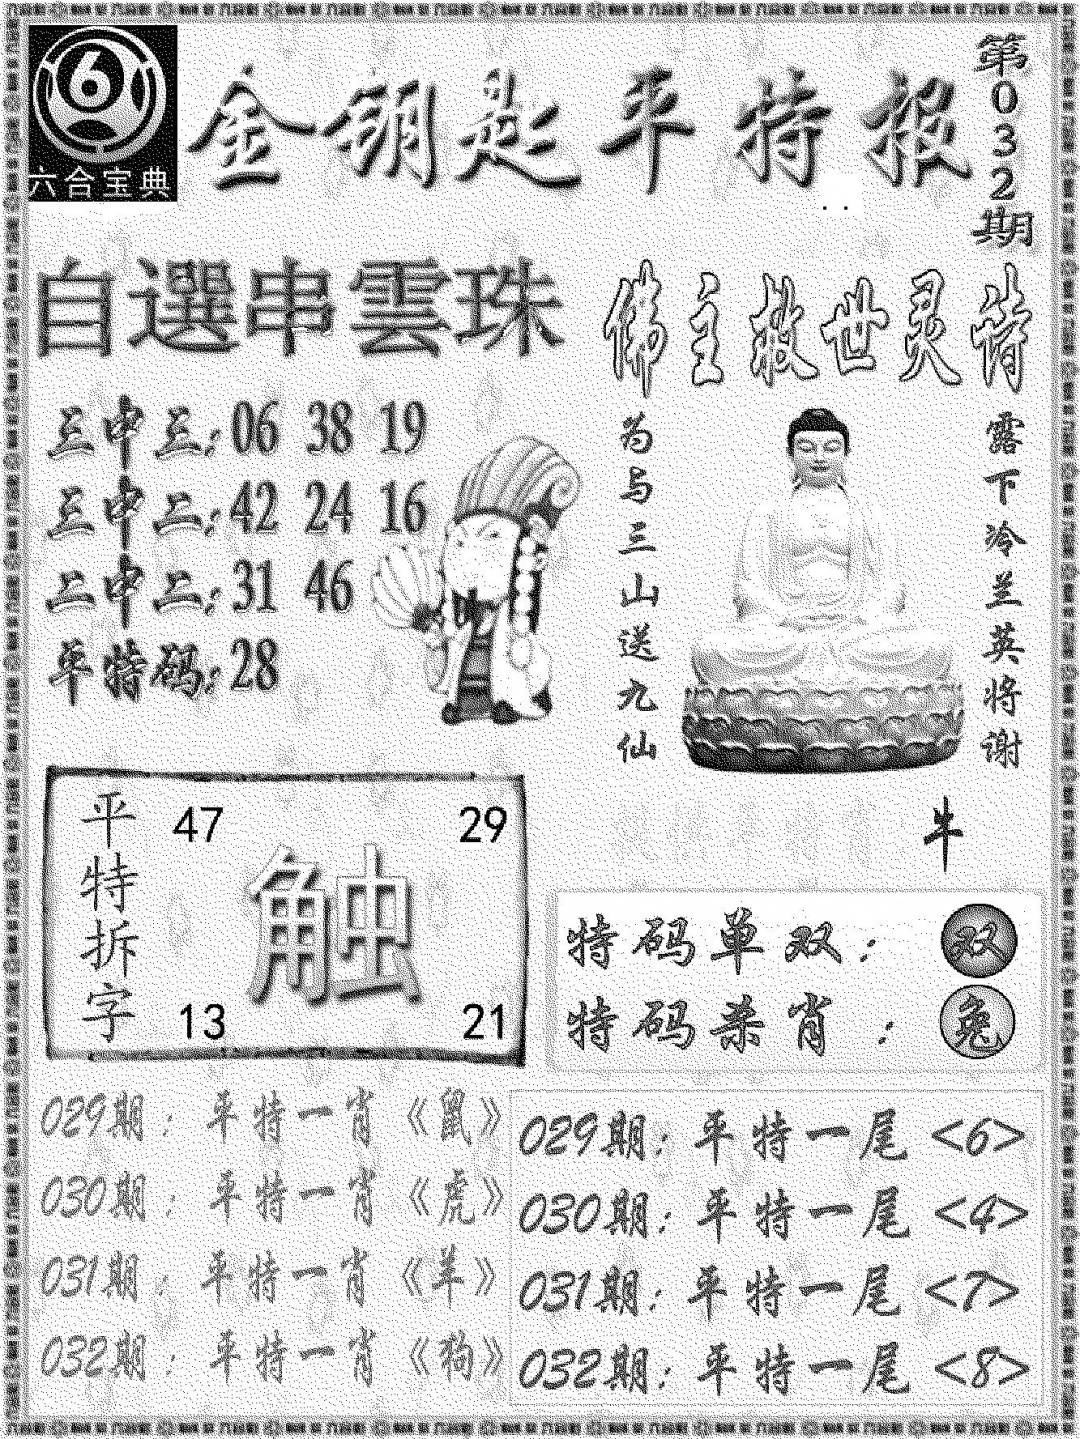 六合宝典
金钥匙平特报
第032期
自選串雲珠
三中三:06 38 19
三中二:42 24 16
二中二:31 46
平特码:28
佛主救世灵诗
露下冷兰英将谢
为与三山送九仙
牛
平特拆字
47 29
触
13 21
特码单双：双
特码杀肖：兔
029期：平特一肖《鼠》
030期：平特一肖《虎》
031期：平特一肖《羊》
032期：平特一肖《狗》
029期：平特一尾<6>
030期：平特一尾<4>
031期：平特一尾<7>
032期：平特一尾<8>